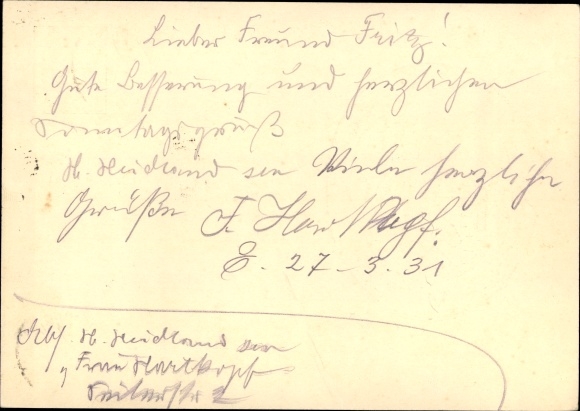 Lieber Freund Fritz!
Gute Besserung und herzlichen
Sonntagsgruß
H. Heidland sen Viele herzliche
Grüße F. Hartkopf.
E. 27-3.31
Abs H. Heidland sen
" Frau Hartkopf
2